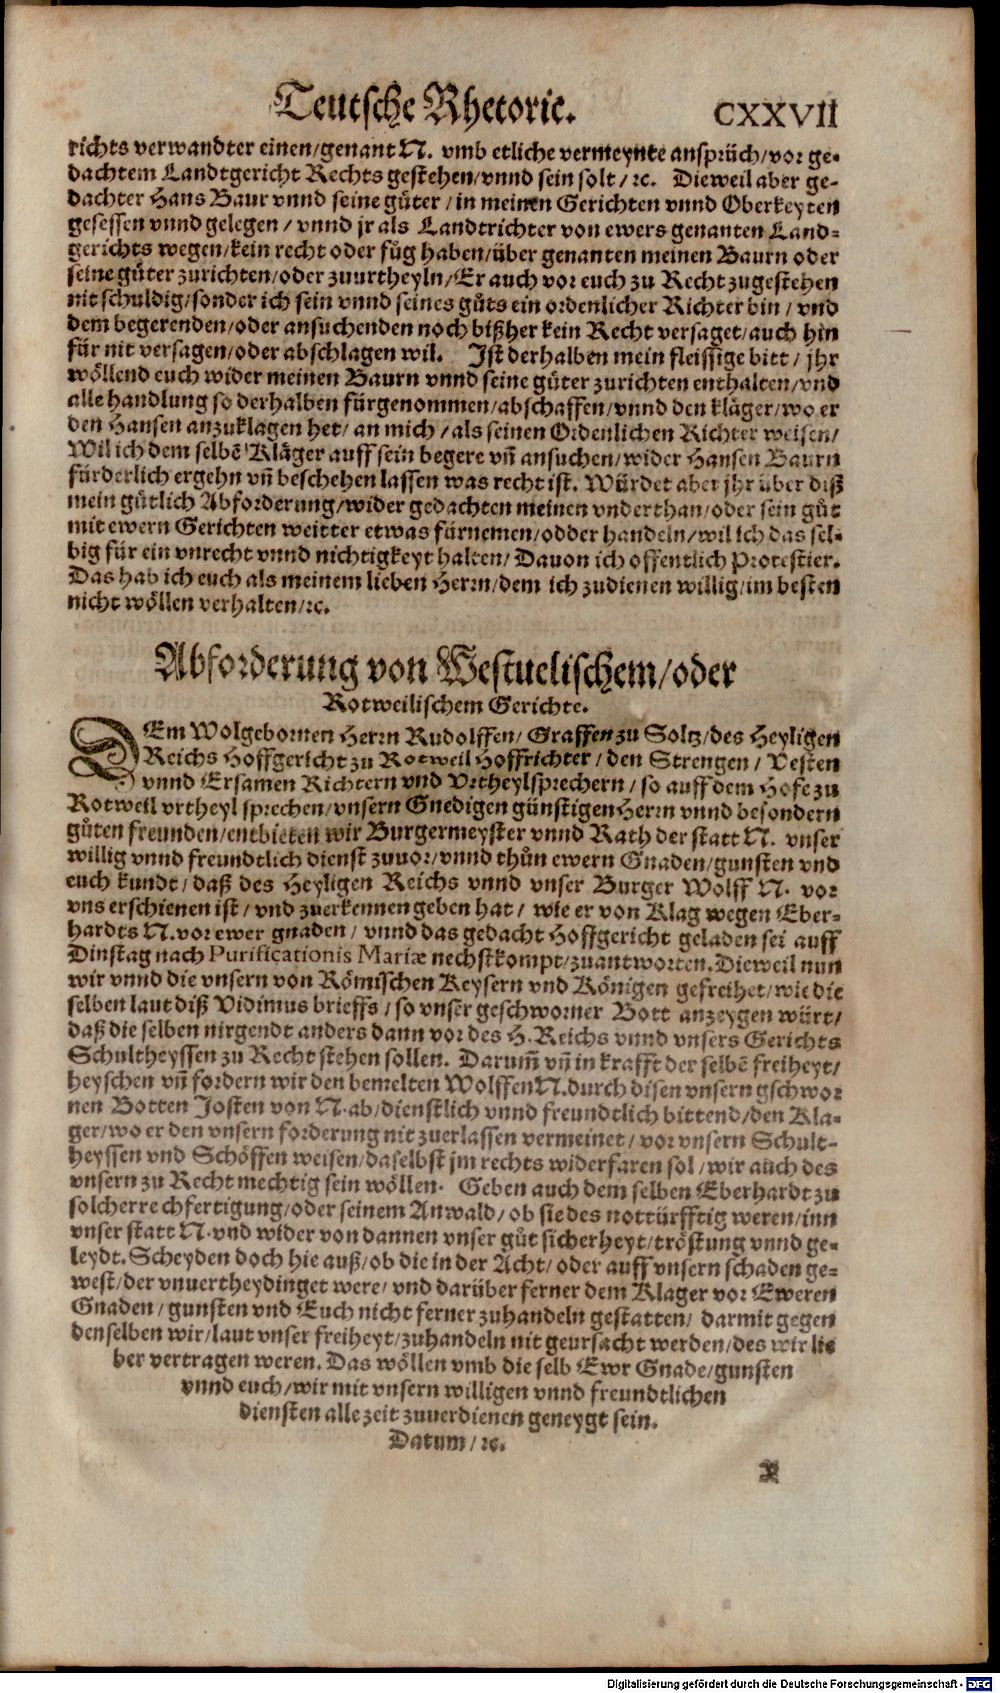 Teutsche Rhetoric. CXXVII
richts verwandter einen/genant N. vmb etliche vermeynte ansprüch/vor ge-
dachtem Landtgericht Rechts gestehen/vnnd sein solt/ꝛc. Dieweil aber ge-
dachter Hans Baur vnnd seine güter/in meinen Gerichten vnnd Oberkeyten
gesessen vnnd gelegen/vnnd jr als Landtrichter von ewers genanten Land-
gerichts wegen/kein recht oder fůg haben/über genanten meinen Baurn oder
seine güter zurichten/oder zuurtheyln/Er auch vor euch zu Recht zugestehen
nit schuldig/sonder ich sein vnnd seines gůts ein ordenlicher Richter bin/vnd
dem begerenden/oder ansuchenden noch bißher kein Recht versaget/auch hin
für nit versagen/oder abschlagen wil. Ist derhalben mein fleissige bitt/jhr
wöllend euch wider meinen Baurn vnnd seine güter zurichten enthalten/vnd
alle handlung so derhalben fürgenommen/abschaffen/vnnd den kläger/wo er
den Hansen anzuklagen het/an mich/als seinen Ordenlichen Richter weisen/
Wil ich dem selbē Kläger auff sein begere vn̄ ansuchen/wider Hansen Baurn
fürderlich ergehn vn̄ beschehen lassen was recht ist. Würdet aber jhr über diß
mein gütlich Abforderung/wider gedachten meinen vnderthan/oder sein gůt
mit ewern Gerichten weitter etwas fürnemen/odder handeln/wil ich das sel-
big für ein vnrecht vnnd nichtigkeyt halten/Dauon ich offentlich Protestier.
Das hab ich euch als meinem lieben Herrn/dem ich zudienen willig/im besten
nicht wöllen verhalten/ꝛc.
Abforderung von Westuelischem/oder
Rotweilischem Gerichte.
DEm Wolgebornen Herrn Rudolffen/Graffen zu Soltz/des Heyligen
Reichs Hoffgericht zu Rotweil Hoffrichter/den Strengen/Vesten
vnnd Ersamen Richtern vnd Vrtheylsprechern/so auff dem Hofe zu
Rotweil vrtheyl sprechen/vnsern Gnedigen günstigen Herrn vnnd besondern
gůten freunden/entbieten wir Burgermeyster vnnd Rath der statt N. vnser
willig vnnd freundtlich dienst zuuor/vnnd thůn ewern Gnaden/gunsten vnd
euch kundt/daß des Heyligen Reichs vnnd vnser Burger Wolff N. vor
vns erschienen ist/vnd zuerkennen geben hat/wie er von Klag wegen Eber-
hardts N. vor ewer gnaden/vnnd das gedacht Hoffgericht geladen sei auff
Dinstag nach Purificationis Mariæ nechstkompt/zuantworten. Dieweil nun
wir vnnd die vnsern von Römischen Keysern vnd Königen gefreihet/wie die
selben laut diß Vidimus brieffs/so vnser geschworner Bott anzeygen würt/
daß die selben nirgendt anders dann vor des H. Reichs vnnd vnsers Gerichts
Schultheyssen zu Recht stehen sollen. Darum̄ vn̄ in krafft der selbē freiheyt/
heyschen vn̄ fordern wir den bemelten Wolffen N. durch disen vnsern gschwor
nen Botten Josten von N. ab/dienstlich vnnd freundtlich bittend/den Kla-
ger/wo er den vnsern forderung nit zuerlassen vermeinet/vor vnsern Schult-
heyssen vnd Schöffen weisen/daselbst jm rechts widerfaren sol/wir auch des
vnsern zu Recht mechtig sein wöllen. Geben auch dem selben Eberhardt zu
solcher rechfertigung/oder seinem Anwald/ob sie des nottürfftig weren/inn
vnser statt N. vnd wider von dannen vnser gůt sicherheyt/tröstung vnnd ge-
leydt. Scheyden doch hie auß/ob die in der Acht/oder auff vnsern schaden ge-
west/der vnuertheydinget were/vnd darüber ferner dem Klager vor Eweren
Gnaden/gunsten vnd Euch nicht ferner zuhandeln gestatten/darmit gegen
denselben wir/laut vnser freiheyt/zuhandeln nit geursacht werden/des wir lie
ber vertragen weren. Das wöllen vmb die selb Ewr Gnade/gunsten
vnnd euch/wir mit vnsern willigen vnnd freundtlichen
diensten alle zeit zuuerdienen geneygt sein.
Datum/ꝛc.
X
Digitalisierung gefördert durch die Deutsche Forschungsgemeinschaft - DFG